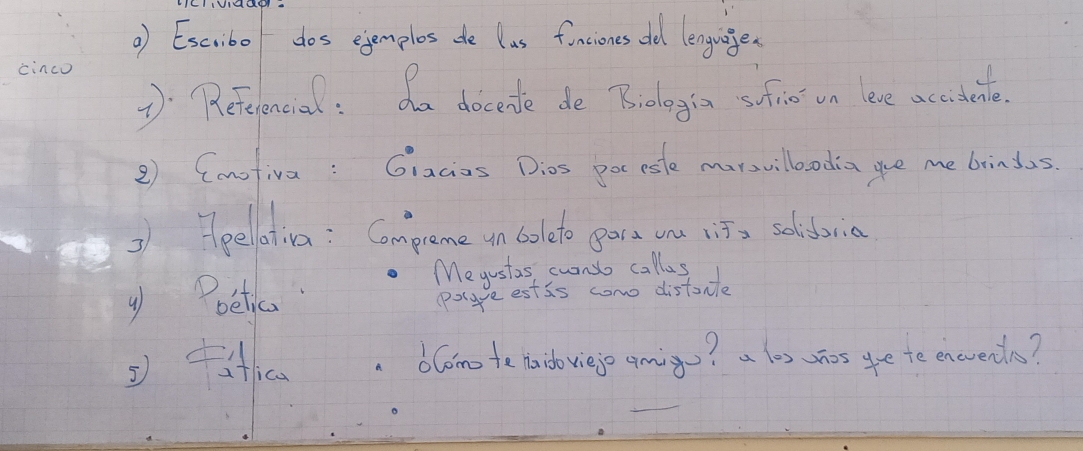 Actividad:
a) Escribo dos ejemplos de las funciones del lenguaje.
cinco
1) Referencial: La docente de Biología sufrió un leve accidente.
2) Emotiva : Gracias Dios por este maravilloso día que me brindas.
3) Apelativa: Compreme un boleto para una rifa solidaria
4) Poética • Me gustas cuando callas
porque estás como distante
5) Fática • ¿Cómo te ha ido viejo amigo? a los años que te encuentro?